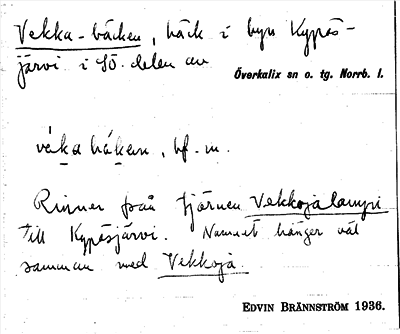 Vekka-bäcken, bäck i byn Kypäs-
järvi i SÖ. delen av
Överkalix sn o. tg. Norrb. l.
bf. m.
Rinner från tjärnen Vekkojalampi
till Kypäsjärvi. Namnet hänger väl
samman med Vekkoja.
EDVIN BRÄNNSTRÖM 1936.